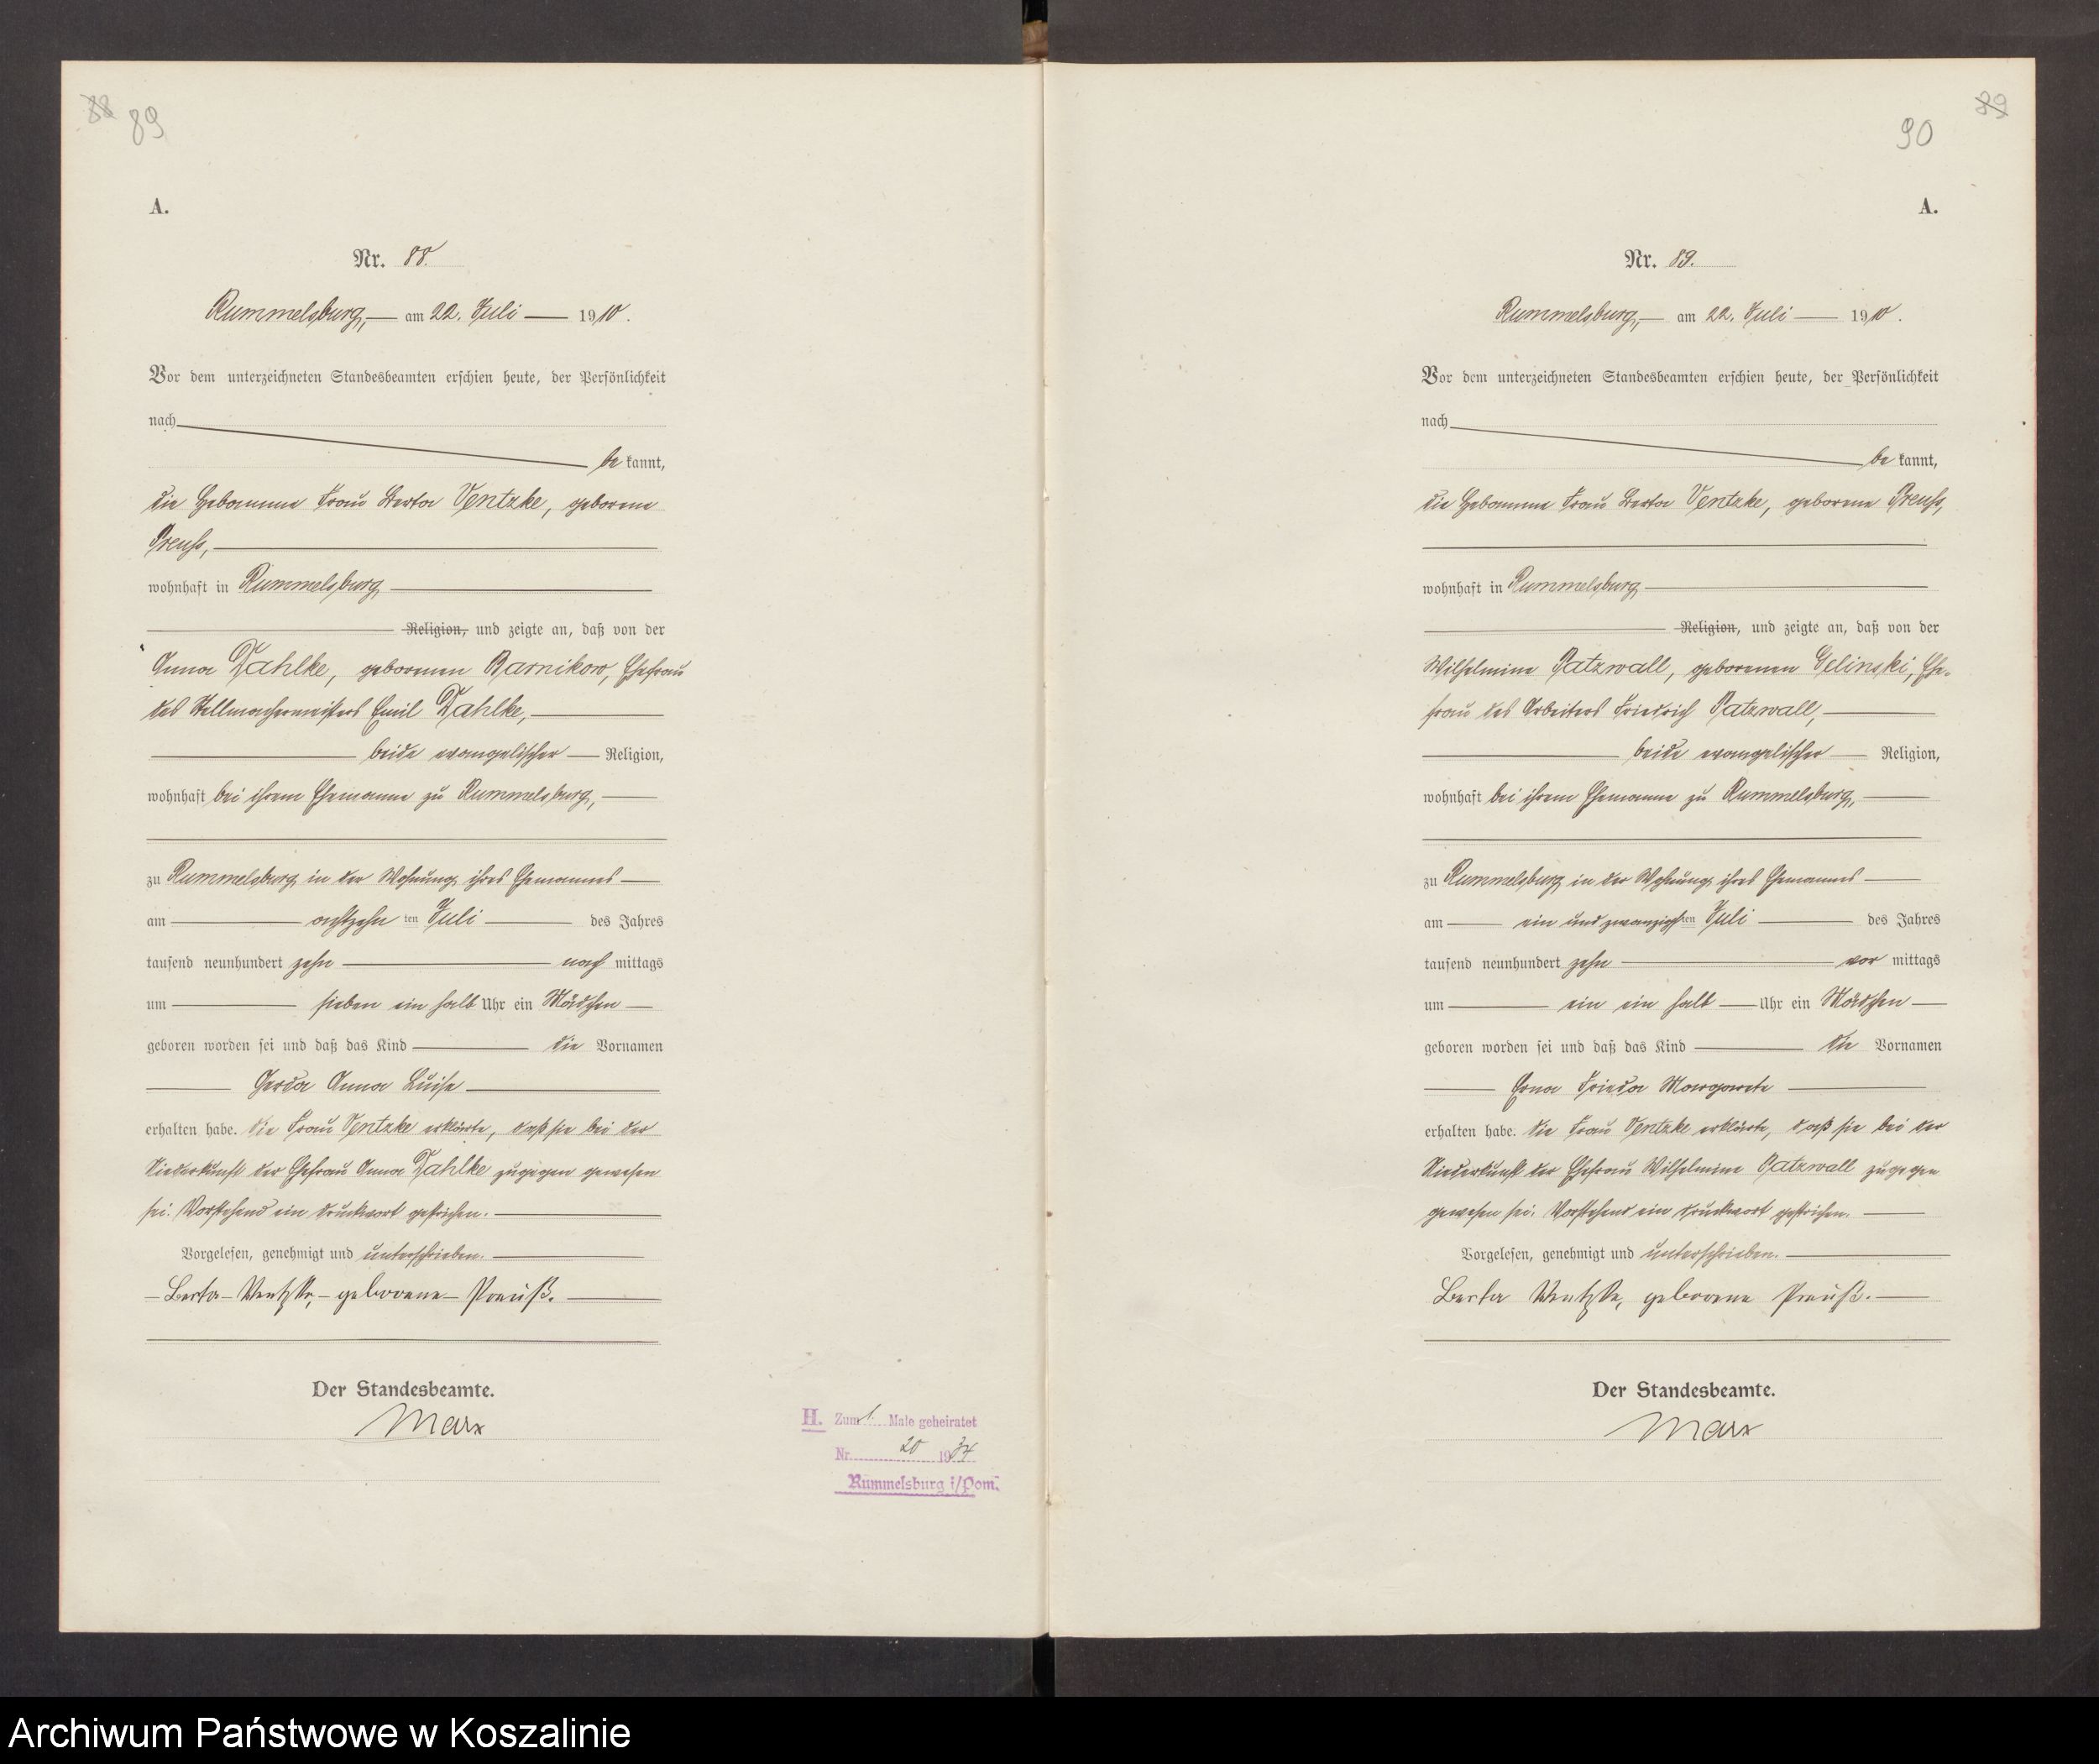 88 89
A.
Nr. 88.
Rummelsburg, am 22. Juli 1910.
Vor dem unterzeichneten Standesbeamten erschien heute, der Persönlichkeit
nach
be kannt,
die Hebamme Frau Berta Ventzke, geborene
Preuss,
wohnhaft in Rummelsburg
Religion, und zeigte an, daß von der
Anna Dahlke, geborenen Barnikow, Ehefrau
des Stellmachermeisters Emil Dahlke,
beide evangelischer Religion,
wohnhaft bei ihrem Ehemanne zu Rummelsburg,
zu Rummelsburg in der Wohnung ihres Ehemannes
am achtzehn ten Juli des Jahres
tausend neunhundert zehn nach mittags
um sieben ein halb Uhr ein Mädchen
geboren worden sei und daß das Kind die Vornamen
Gerda Anna Luise
erhalten habe. Die Frau Ventzke erklärte, daß sie bei der
Niederkunft der Ehefrau Anna Dahlke zugegen gewesen
sei. Vorstehend ein Druckwort gestrichen.
Vorgelesen, genehmigt und unterschrieben.
Berta Ventzke, geborene Preuß.
Der Standesbeamte.
Marx
H. Zum 1. Male geheiratet
Nr. 20 1934
Rummelsburg i/Pom.
89
90
A.
Nr. 89.
Rummelsburg, am 22. Juli 1910.
Vor dem unterzeichneten Standesbeamten erschien heute, der Persönlichkeit
nach
be kannt,
die Hebamme Frau Berta Ventzke, geborene Preuss,
wohnhaft in Rummelsburg
Religion, und zeigte an, daß von der
Wilhelmine Patzwall, geborenen Gelinski, Ehe-
frau des Arbeiters Friedrich Patzwall,
beide evangelischer Religion,
wohnhaft bei ihrem Ehemanne zu Rummelsburg,
zu Rummelsburg in der Wohnung ihres Ehemannes
am ein und zwanzigsten Juli des Jahres
tausend neunhundert zehn vor mittags
um ein ein halb Uhr ein Mädchen
geboren worden sei und daß das Kind die Vornamen
Erna Frieda Margarete
erhalten habe. Die Frau Ventzke erklärte, daß sie bei der
Niederkunft der Ehefrau Wilhelmine Patzwall zugegen
gewesen sei. Vorstehend ein Druckwort gestrichen.
Vorgelesen, genehmigt und unterschrieben.
Berta Ventzke, geborene Preuß.
Der Standesbeamte.
Marx
Archiwum Państwowe w Koszalinie